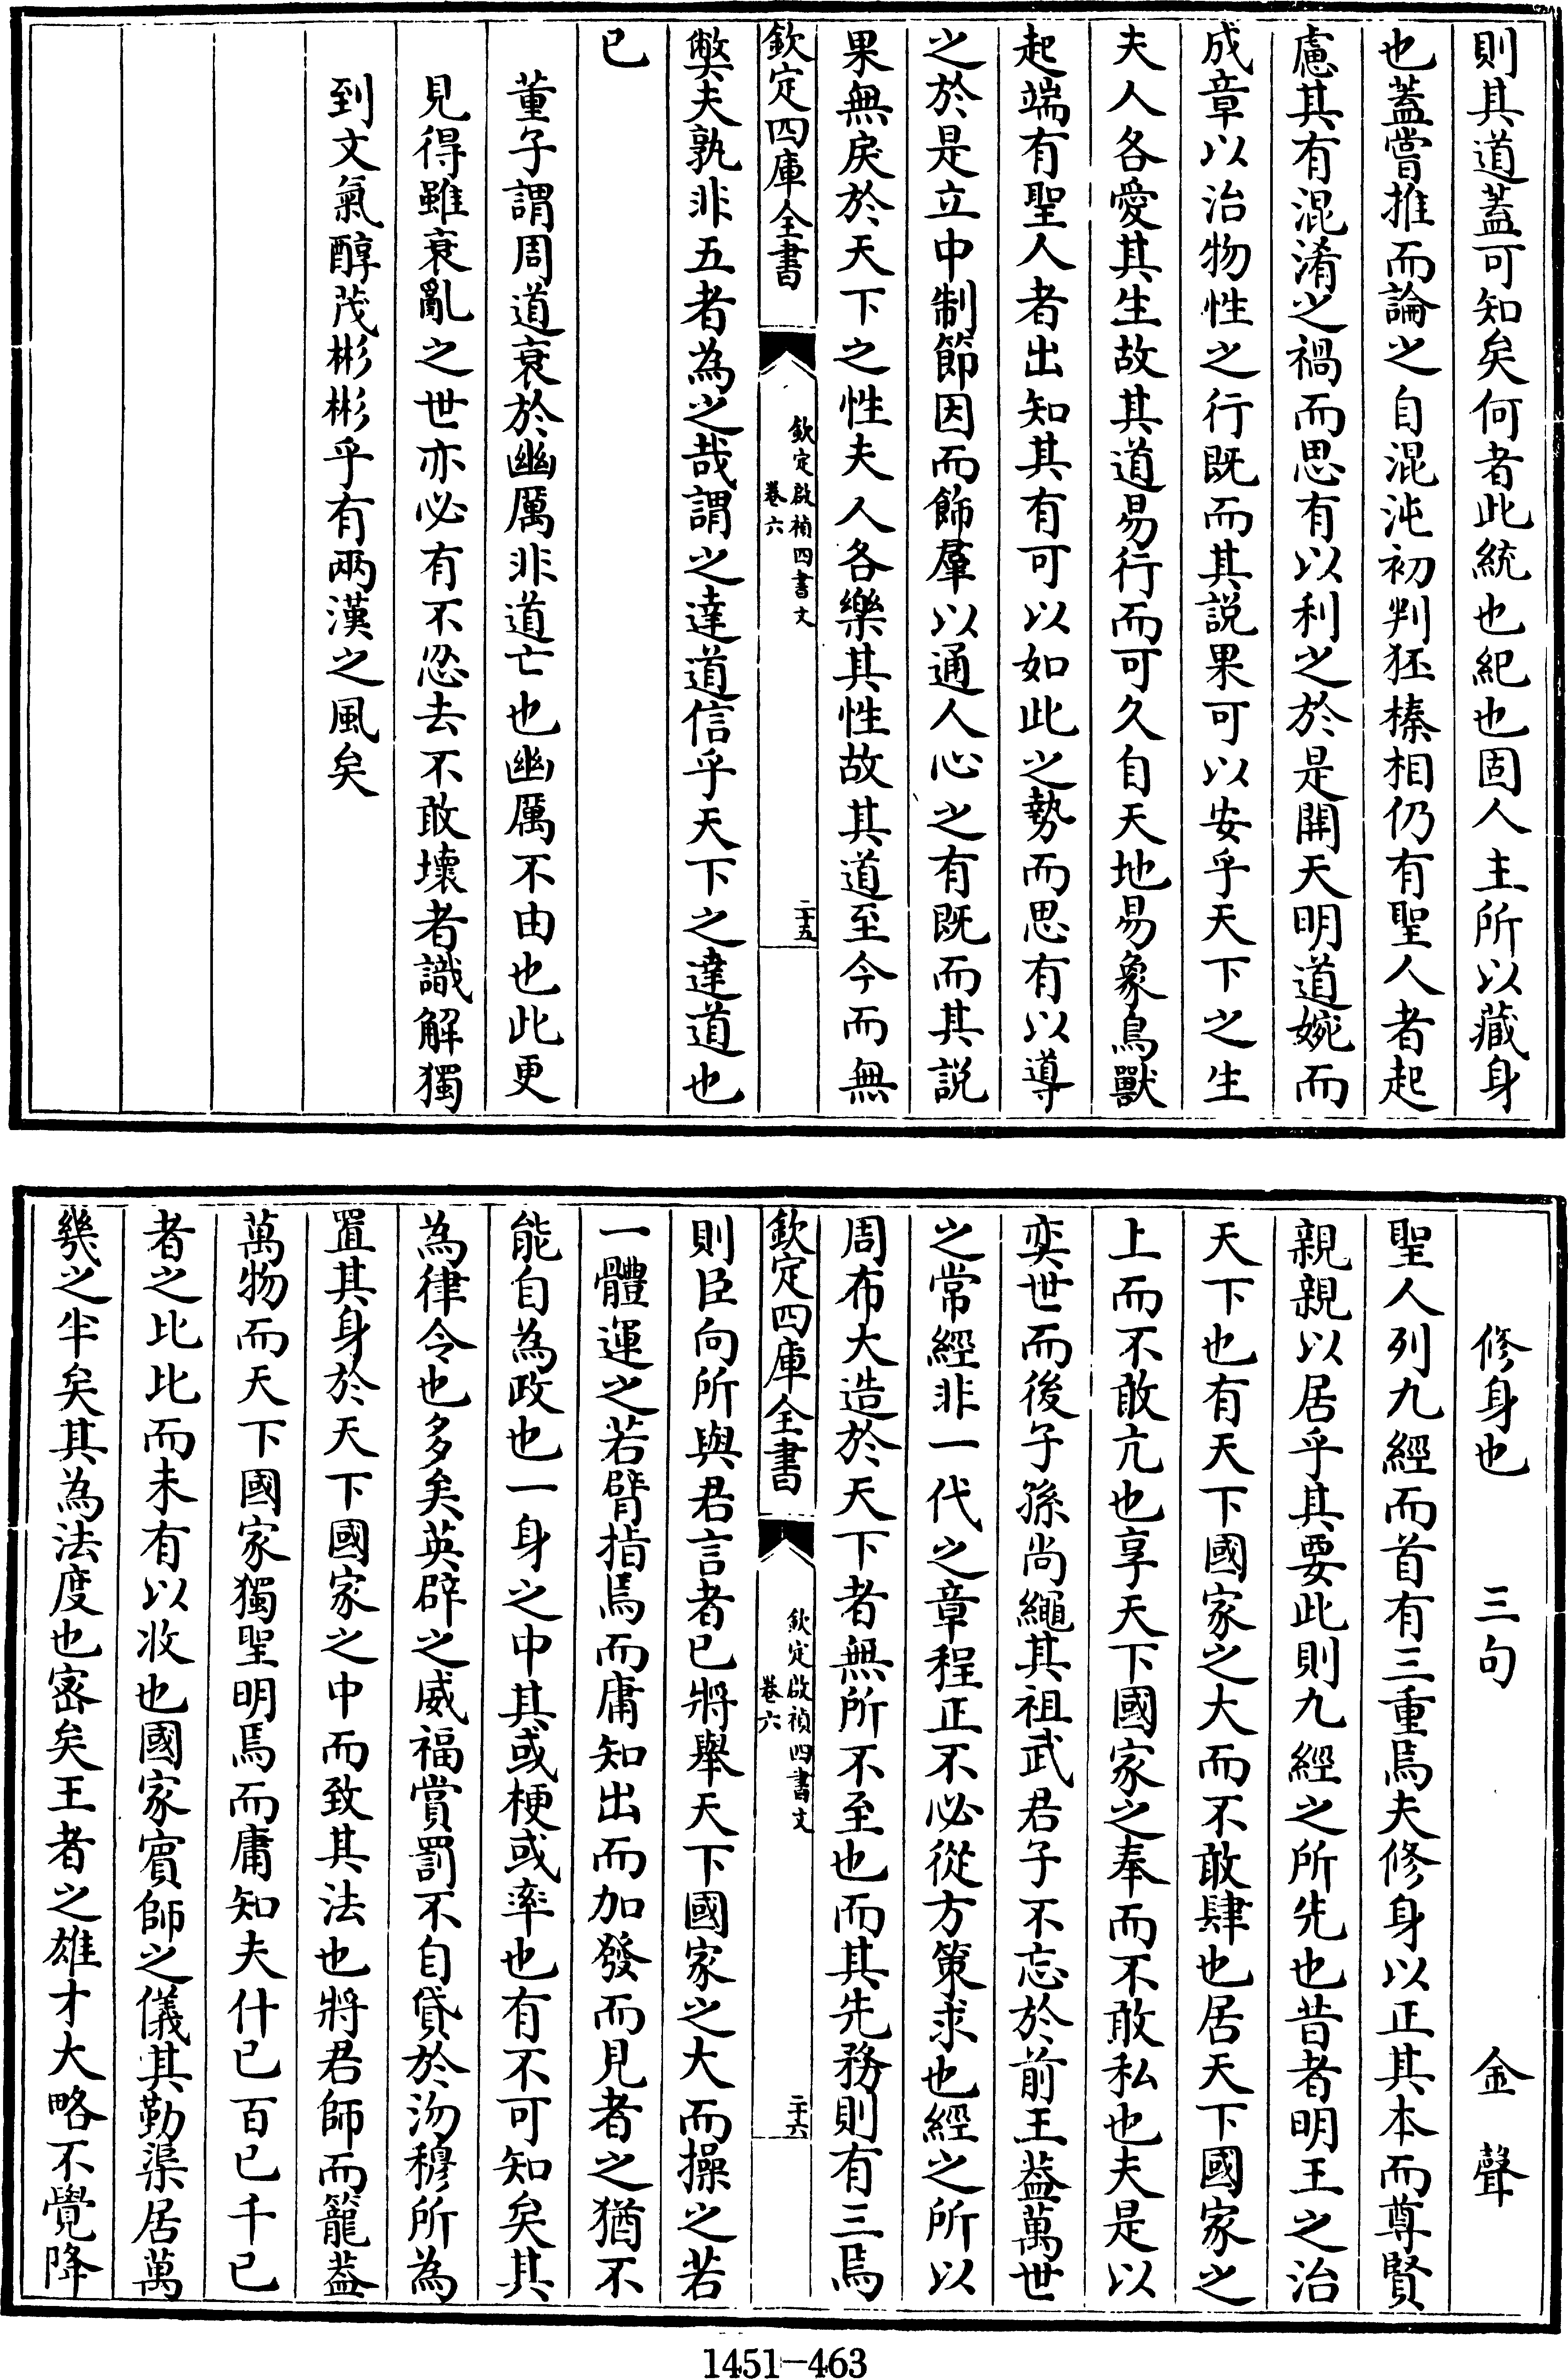 則其道蓋可知矣何者此統也紀也固人主所以藏身
也蓋嘗推而論之自混沌初判狉榛相仍有聖人者起
慮其有混淆之禍而思有以利之於是開天明道婉而
成章以治物性之行既而其説果可以安乎天下之生
夫人各愛其生故其道易行而可久自天地易象鳥獸
起端有聖人者出知其有可以如此之勢而思有以導
之於是立中制節因而飾羣以通人心之有既而其説
果無戾於天下之性夫人各樂其性故其道至今而無
欽定四庫全書
欽定啟禎四書文
卷六
二十五
弊夫孰非五者為之哉謂之達道信乎天下之達道也
已
董子謂周道衰於幽厲非道亡也幽厲不由也此更
見得雖衰亂之世亦必有不忍去不敢壞者識解獨
到文氣醇茂彬彬乎有兩漢之風矣
修身也 三句 金聲
聖人列九經而首有三重焉夫修身以正其本而尊賢
親親以居乎其要此則九經之所先也昔者明王之治
天下也有天下國家之大而不敢肆也居天下國家之
上而不敢亢也享天下國家之奉而不敢私也夫是以
奕世而後子孫尚繩其祖武君子不忘於前王益萬世
之常經非一代之章程正不必從方策求也經之所以
周布大造於天下者無所不至也而其先務則有三焉
欽定四庫全書
欽定啟禎四書文
卷六
二十六
則臣向所與君言者已將舉天下國家之大而操之若
一體運之若臂指焉而庸知出而加發而見者之猶不
能自為政也一身之中其或梗或率也有不可知矣其
為律令也多矣英辟之威福賞罰不自貸於沕穆所為
置其身於天下國家之中而致其法也將君師而籠蓋
萬物而天下國家獨聖明焉而庸知夫什已百已千已
者之比比而未有以收也國家賓師之儀其勤渠居萬
幾之半矣其為法度也宻矣王者之雄才大略不覺降
1451-463